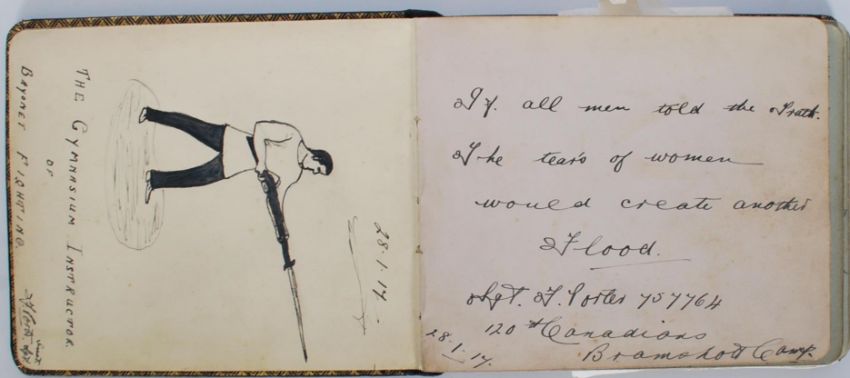 THE GYMNASIUM INSTRUCTOR.
OR
BAYONET FIGHTING.
28.1.17.
If. all men told the Truth.
The tears of women
would create another
Flood.
Sgt. F. Porter 757764
120th Canadians
Bramshott Camp.
28.1.17.